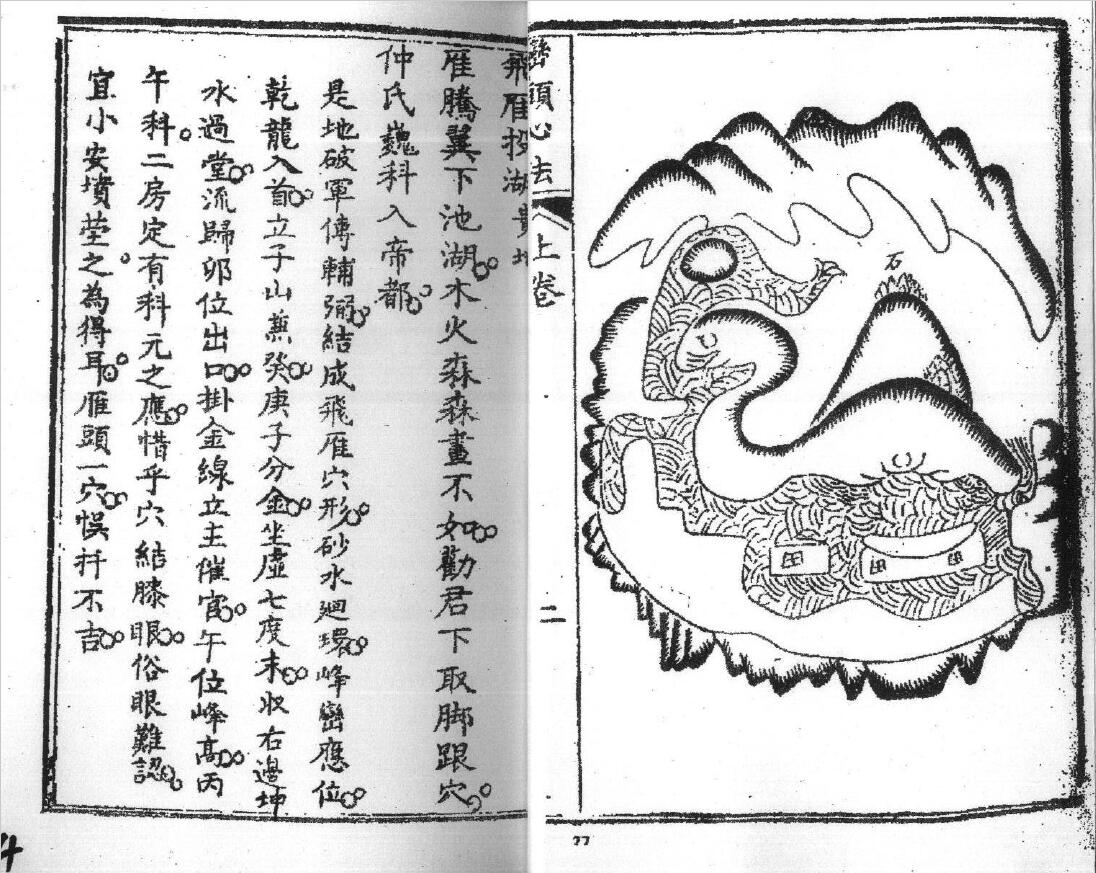 石
田
田
田
巒頭心法
上卷
二
27
飛雁投湖貴地
雁騰翼下池湖木火森森畫不如勸君下取脚跟穴
仲氏巍科入帝都
是地破軍傳輔弼結成飛雁穴形砂水廻環峰巒應位
乾龍入首立子山兼癸庚子分金坐虛七度末收右邊坤
水過堂流歸卯位出口掛金線立主催官午位峰高丙
午科二房定有科元之應惜乎穴結膝眼俗眼難認
宜小安墳塋之為得耳雁頭一穴悞扦不吉